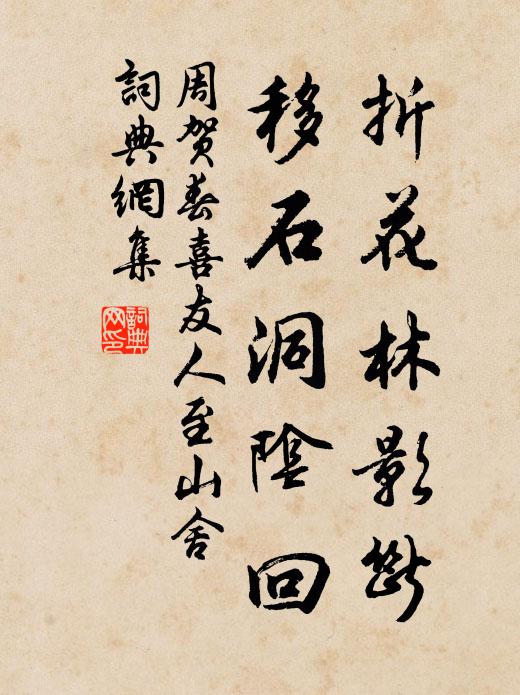 折花林影斷
移石洞陰回
周賀春喜友人至山舍
詞典網集
詞典網印